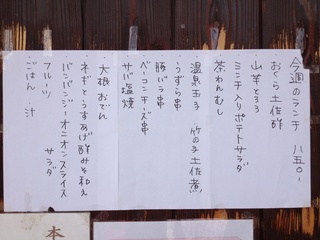 今週のランチ 八五〇.-
おくら土佐酢
山芋とろろ
ミンチ入りポテトサラダ
茶わんむし
温泉玉子 ・竹の子土佐煮
・うずら串
豚バラ串
ベーコンチーズ串
サバ塩焼
大根おでん
ネギとうすあげ酢みそ和え
バンバンジーオニオンスライス サラダ
フルーツ
ごはん 汁
本